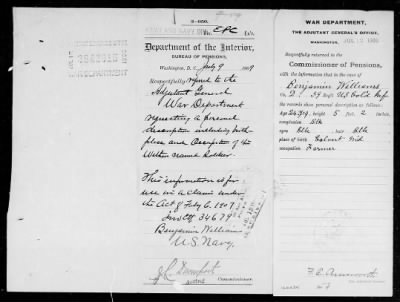 3-656.
Department of the Interior,
BUREAU OF PENSIONS,
Washington, D. C. July 9 1909
Respectfully refered to the
Adjutant General
War Department
requesting a personal
description including birth
place and Occupation of the
within named soldier.
This information is for
use in a claim under
the Act of Feby 6, 1907
34679
Benjamin Williams
U.S. Navy.
Commissioner.
WAR DEPARTMENT,
THE ADJUTANT GENERAL'S OFFICE,
WASHINGTON,
Respectfully returned to the
Commissioner of Pensions,
with the information that in the case of
Benjamin Williams
Co. D. 39 U.S. Cold Inf
the records show personal description as follows:
Age 26 yrs; height 5 feet 2 inches
complexion Blk
eyes Blk hair Blk
place
occupation Farmer
F. C. Ainsworth